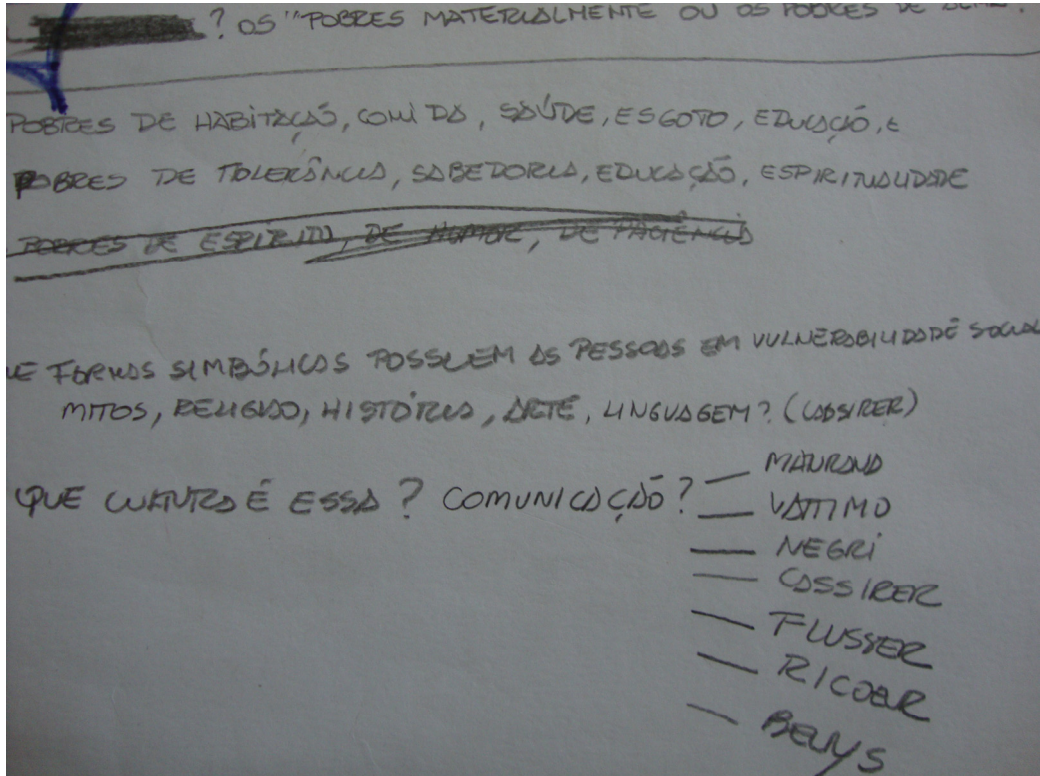 ? OS "POBRES MATERIALMENTE OU OS POBRES DE
POBRES DE HABITAÇÃO, COMIDA, SAÚDE, ESGOTO, EDUCAÇÃO, E
POBRES DE TOLERÂNCIA, SABEDORIA, EDUCAÇÃO, ESPIRITUALIDADE
POBRES DE ESPÍRITO, DE HUMOR, DE PACIÊNCIA
UE FORMAS SIMBÓLICAS POSSUEM AS PESSOAS EM VULNERABILIDADE SOCIAL
MITOS, RELIGIÃO, HISTÓRIA, ARTE, LINGUAGEM? (CASSIRER)
QUE CULTURA É ESSA? COMUNICAÇÃO? — MATURANA
— VATTIMO
— NEGRI
— CASSIRER
— FLUSSER
— RICOEUR
— BEUYS